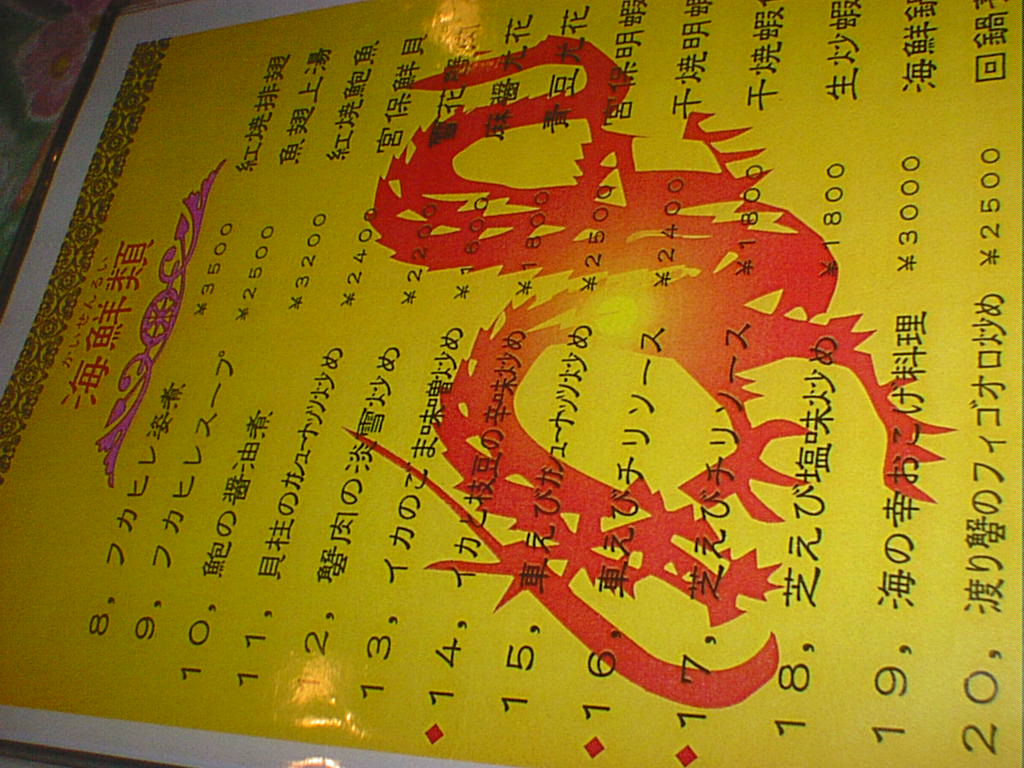 かいせんるい
海鮮類
8, フカヒレ姿煮 ¥3500 紅焼排翅
9, フカヒレスープ ¥2500 魚翅上湯
10, 鮑の醤油煮 ¥3200 紅焼鮑魚
11, 貝柱のカシューナッツ炒め ¥2400 宮保鮮貝
12, 蟹肉の淡雪炒め ¥2200 雪花蟹
13, イカのごま味噌炒め ¥1600 麻醤尤花
◆14, イカと枝豆の辛味炒め ¥1800 青豆尤花
15, 車えびカシューナッツ炒め ¥2500 宮保明蝦
◆16, 車えびチリソース ¥2400 干焼明蝦
◆17, 芝えびチリソース ¥1800 干焼蝦仁
18, 芝えび塩味炒め ¥1800 生炒蝦
19, 海の幸おこげ料理 ¥3000 海鮮鍋
20, 渡り蟹のフィゴオロ炒め ¥2500 回鍋